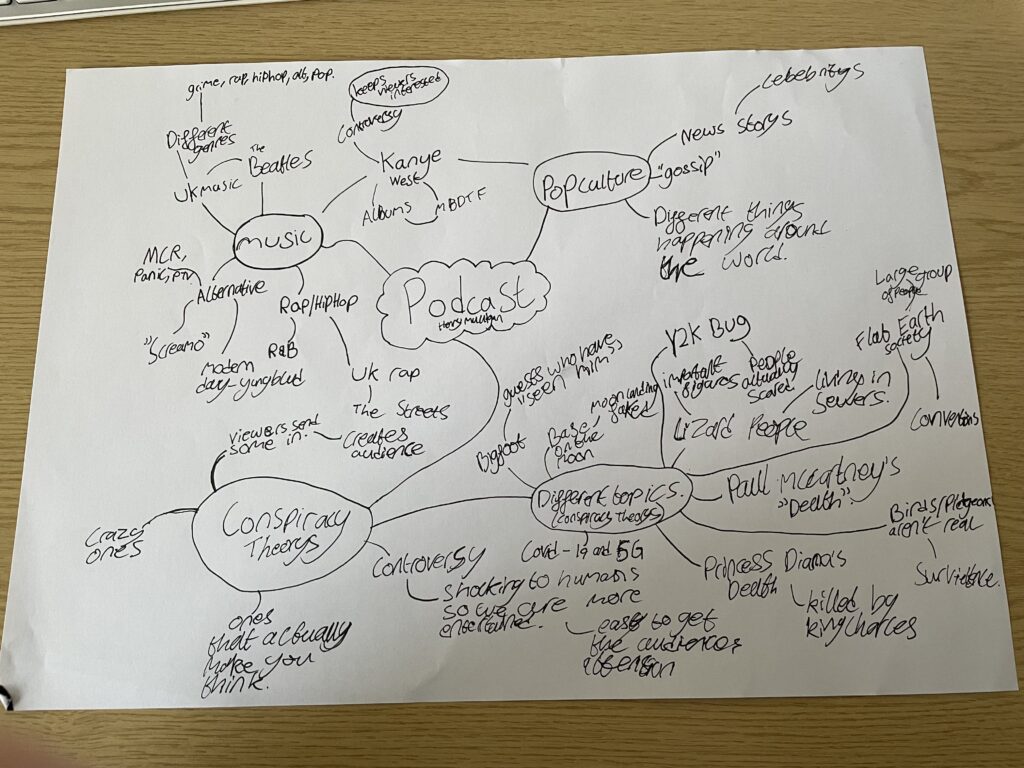 grime, rap, hiphop, alt, pop.
Different
genres
UK music
The
Beatles
keeps
viewers
interested
Controversy
Kanye
West
Albums
MBDTF
music
MCR,
Panic, PTV
Alternative
"Screamo"
modern
day-yungblud
Rap/HipHop
R&B
UK rap
The Streets
Podcast
Popculture
Celebritys
News Storys
"gossip"
Different things
happening around
the world.
viewers send
some in.
Creates
audience
Conspiracy
Theorys
Crazy
ones
ones
that actually
make you
think.
Controversy
Shocking to humans
so we are more
entertained.
easy to get
the audiences
attention
Different topics.
(Conspiracy Theorys)
guests who have
"seen him"
Bigfoot
Base
on the
moon
moon landing
faked
Y2K Bug
People
actually
scared
important
figures
Lizard People
Living in
sewers.
Large group
of people
Flat Earth
society
Conventions
Paul McCartney's
"Death"
Birds/Pidgeons
arent real
Survielence.
Princess Diana's
Death
killed by
king Charles
Covid-19 and 5G